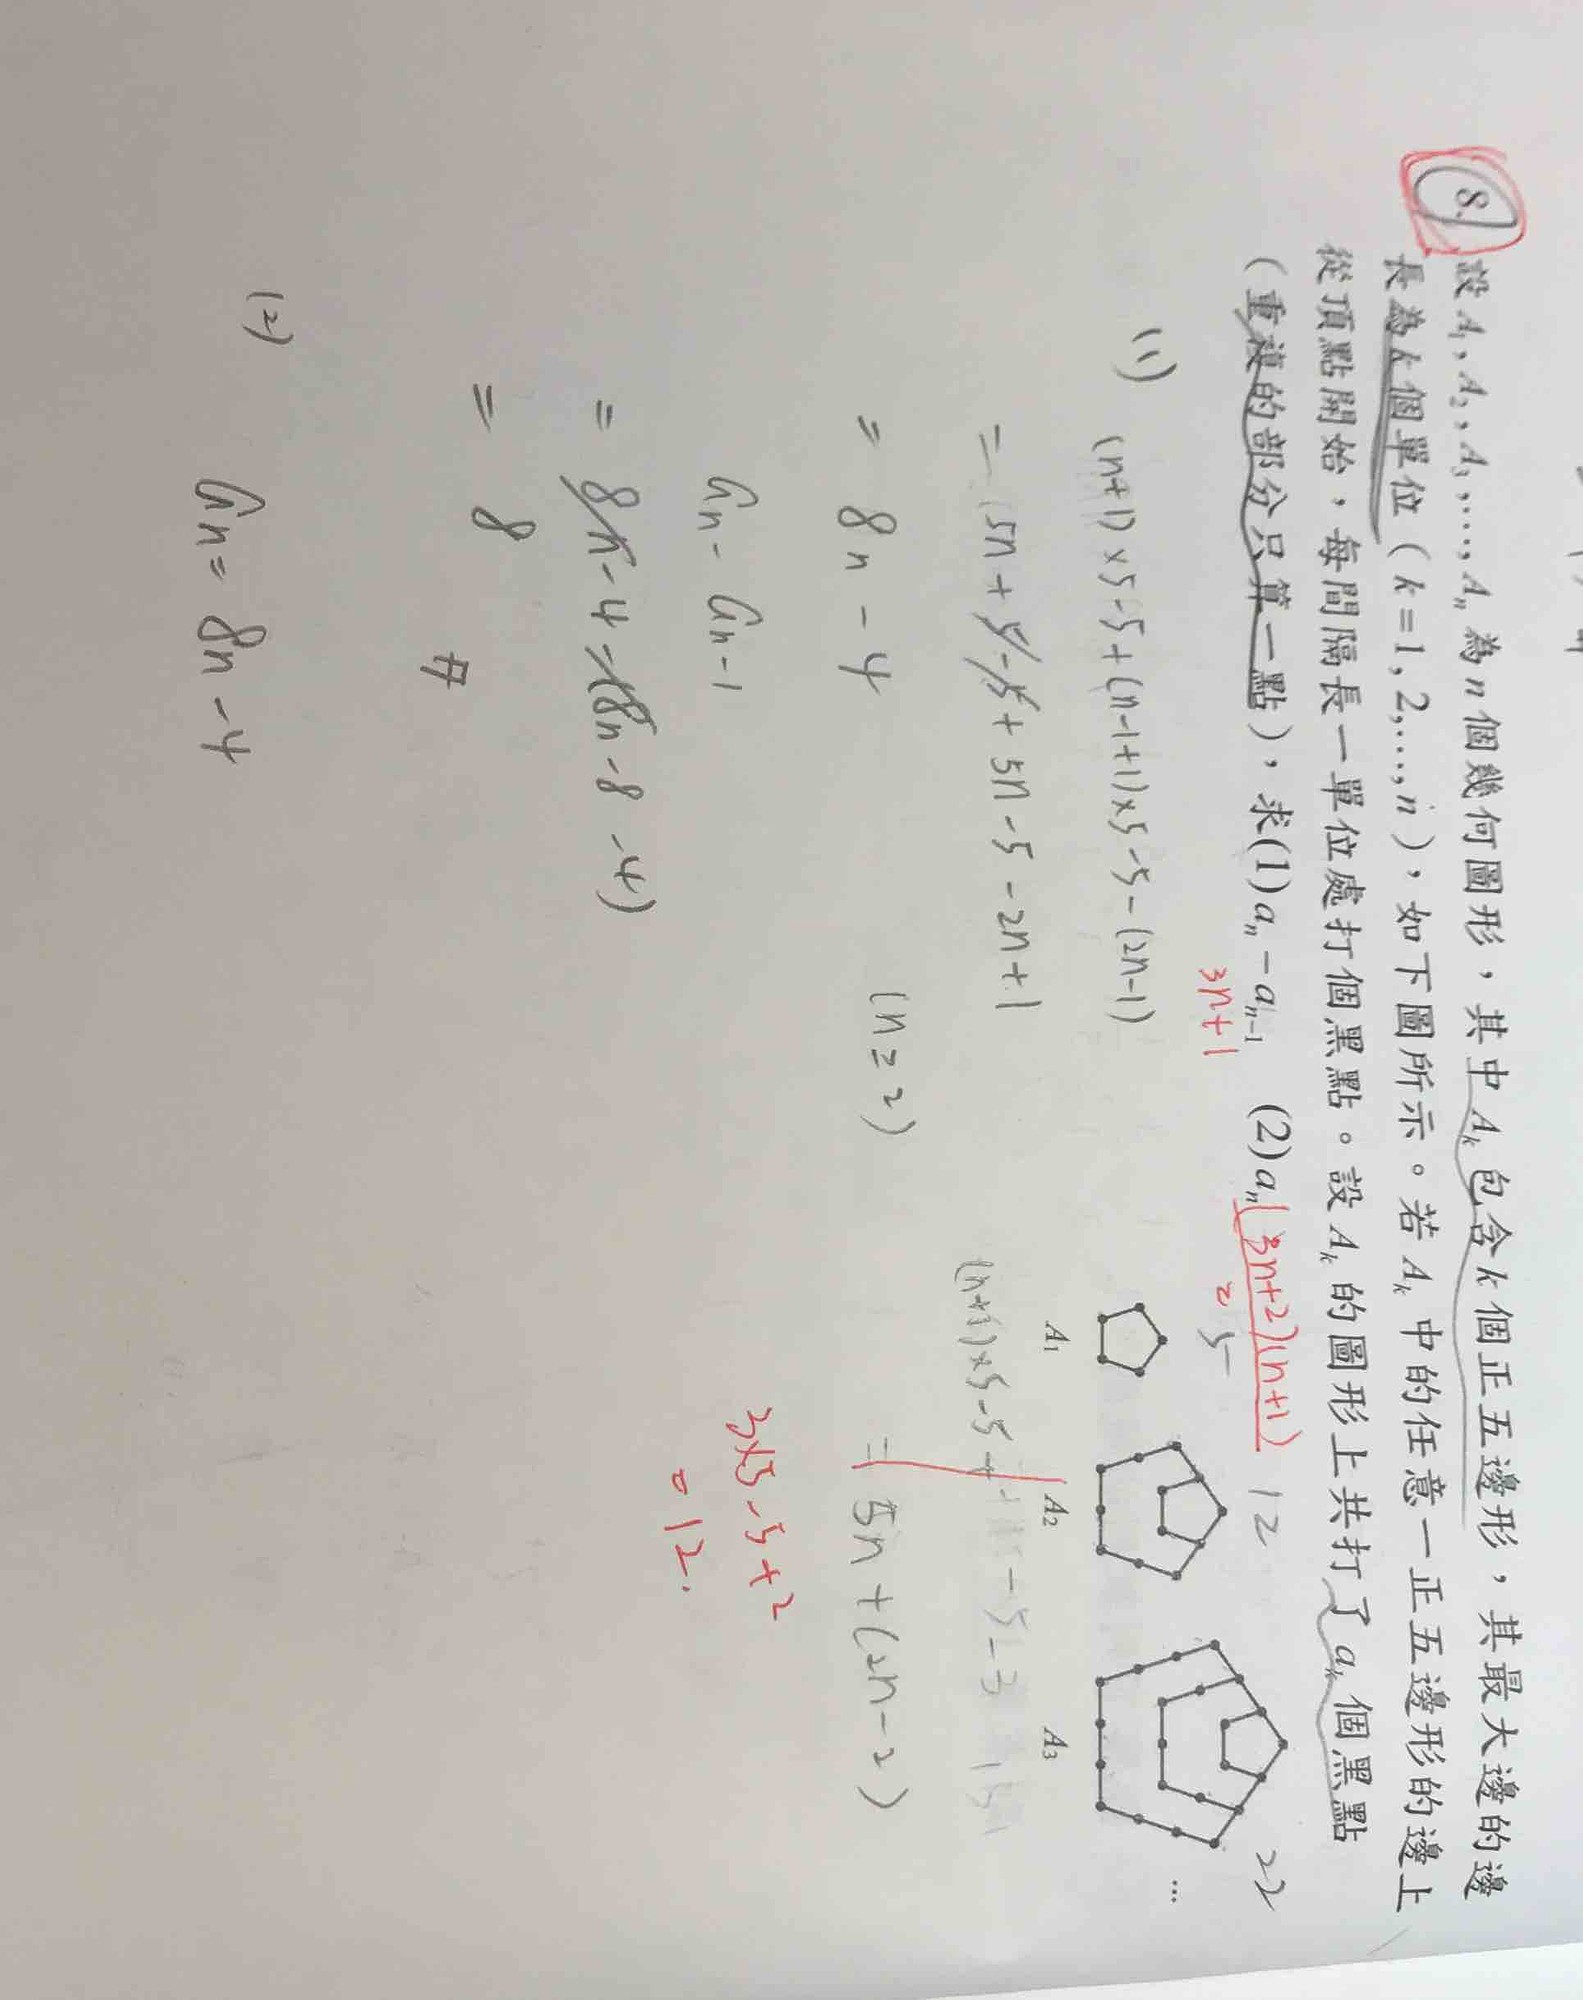 8.
設A₁, A₂, A₃, …, Aₙ為n個幾何圖形，其中Aₖ包含k個正五邊形，其最大邊的邊
長為k個單位（k=1, 2,…, n），如下圖所示。若Aₖ中的任意一正五邊形的邊上
從頂點開始，每間隔長一單位處打個黑點。設Aₖ的圖形上共打了aₖ個黑點
（重複的部分只算一點），求(1)aₙ－aₙ₋₁ (2)aₙ
3n+1
(3n+2)(n+1)
2
5 12 22
A₁ A₂ A₃ …
(1) (n+1)×5-5+(n-1+1)×5-5-(2n-1)
= 5n+5-5+5n-5-2n+1
= 8n-4 (n≥2)
Gn-Gn-1
= 8n-4-(8n-8-4)
= 8
#
(n+1)×5-5+
= 5n+(2n-2)
3×5-5+2
=12.
(2)
Gn=8n-4